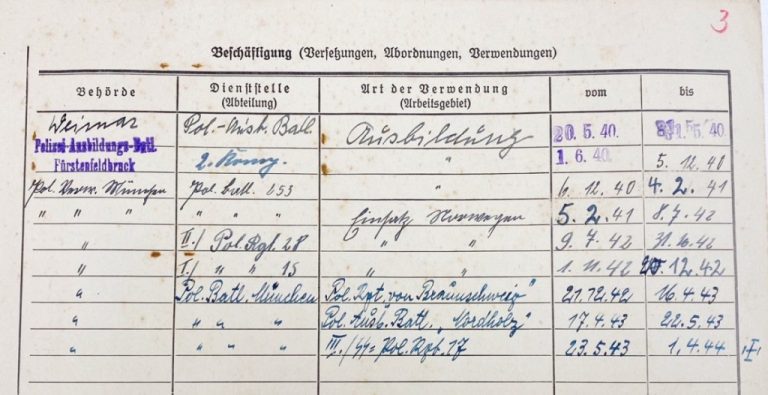 3
Beschäftigung (Versetzungen, Abordnungen, Verwendungen)
Behörde Dienststelle (Abteilung) Art der Verwendung (Arbeitsgebiet) vom bis
Weimar Pol.-Ausb. Batl. Ausbildung 20. 5. 40. 31. 5. 40
Polizei-Ausbildungs-Batl. Fürstenfeldbruck 2. Komp. " 1. 6. 40. 5. 12. 40
Pol. Verw. München Pol. batl. 253 " 6. 12. 40 4. 2. 41
" " " " " " Einsatz Norwegen 5. 2. 41 8. 7. 42
" III./ Pol. Rgt. 28 " " 9. 7. 42 31. 10. 42
" I./ " " 15 " " 1. 11. 42 20. 12. 42
" Pol. Batl. München Pol. Rgt. von Braunschweig" 21. 12. 42 16. 4. 43
" " " " Pol. Ausb. Batl. „Nordholz" 17. 4. 43 22. 5. 43
" " " " III./SS-Pol. Rgt. 17 23. 5. 43 1. 4. 44